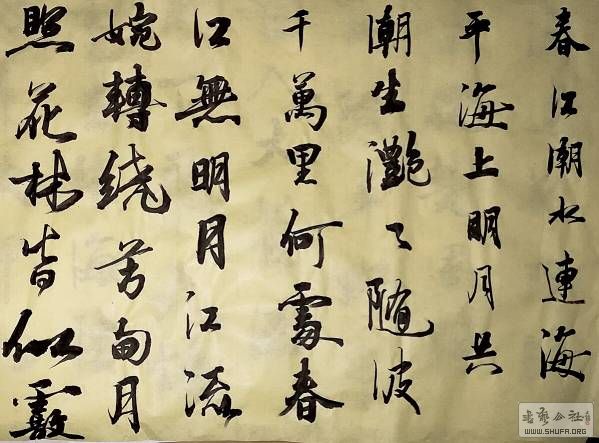 春江潮水連海
平海上明月共
潮生灔〻随波
千萬里何處春
江無明月江流
婉轉绕芳甸月
照花林皆似霰
WWW.SHUFA.ORG